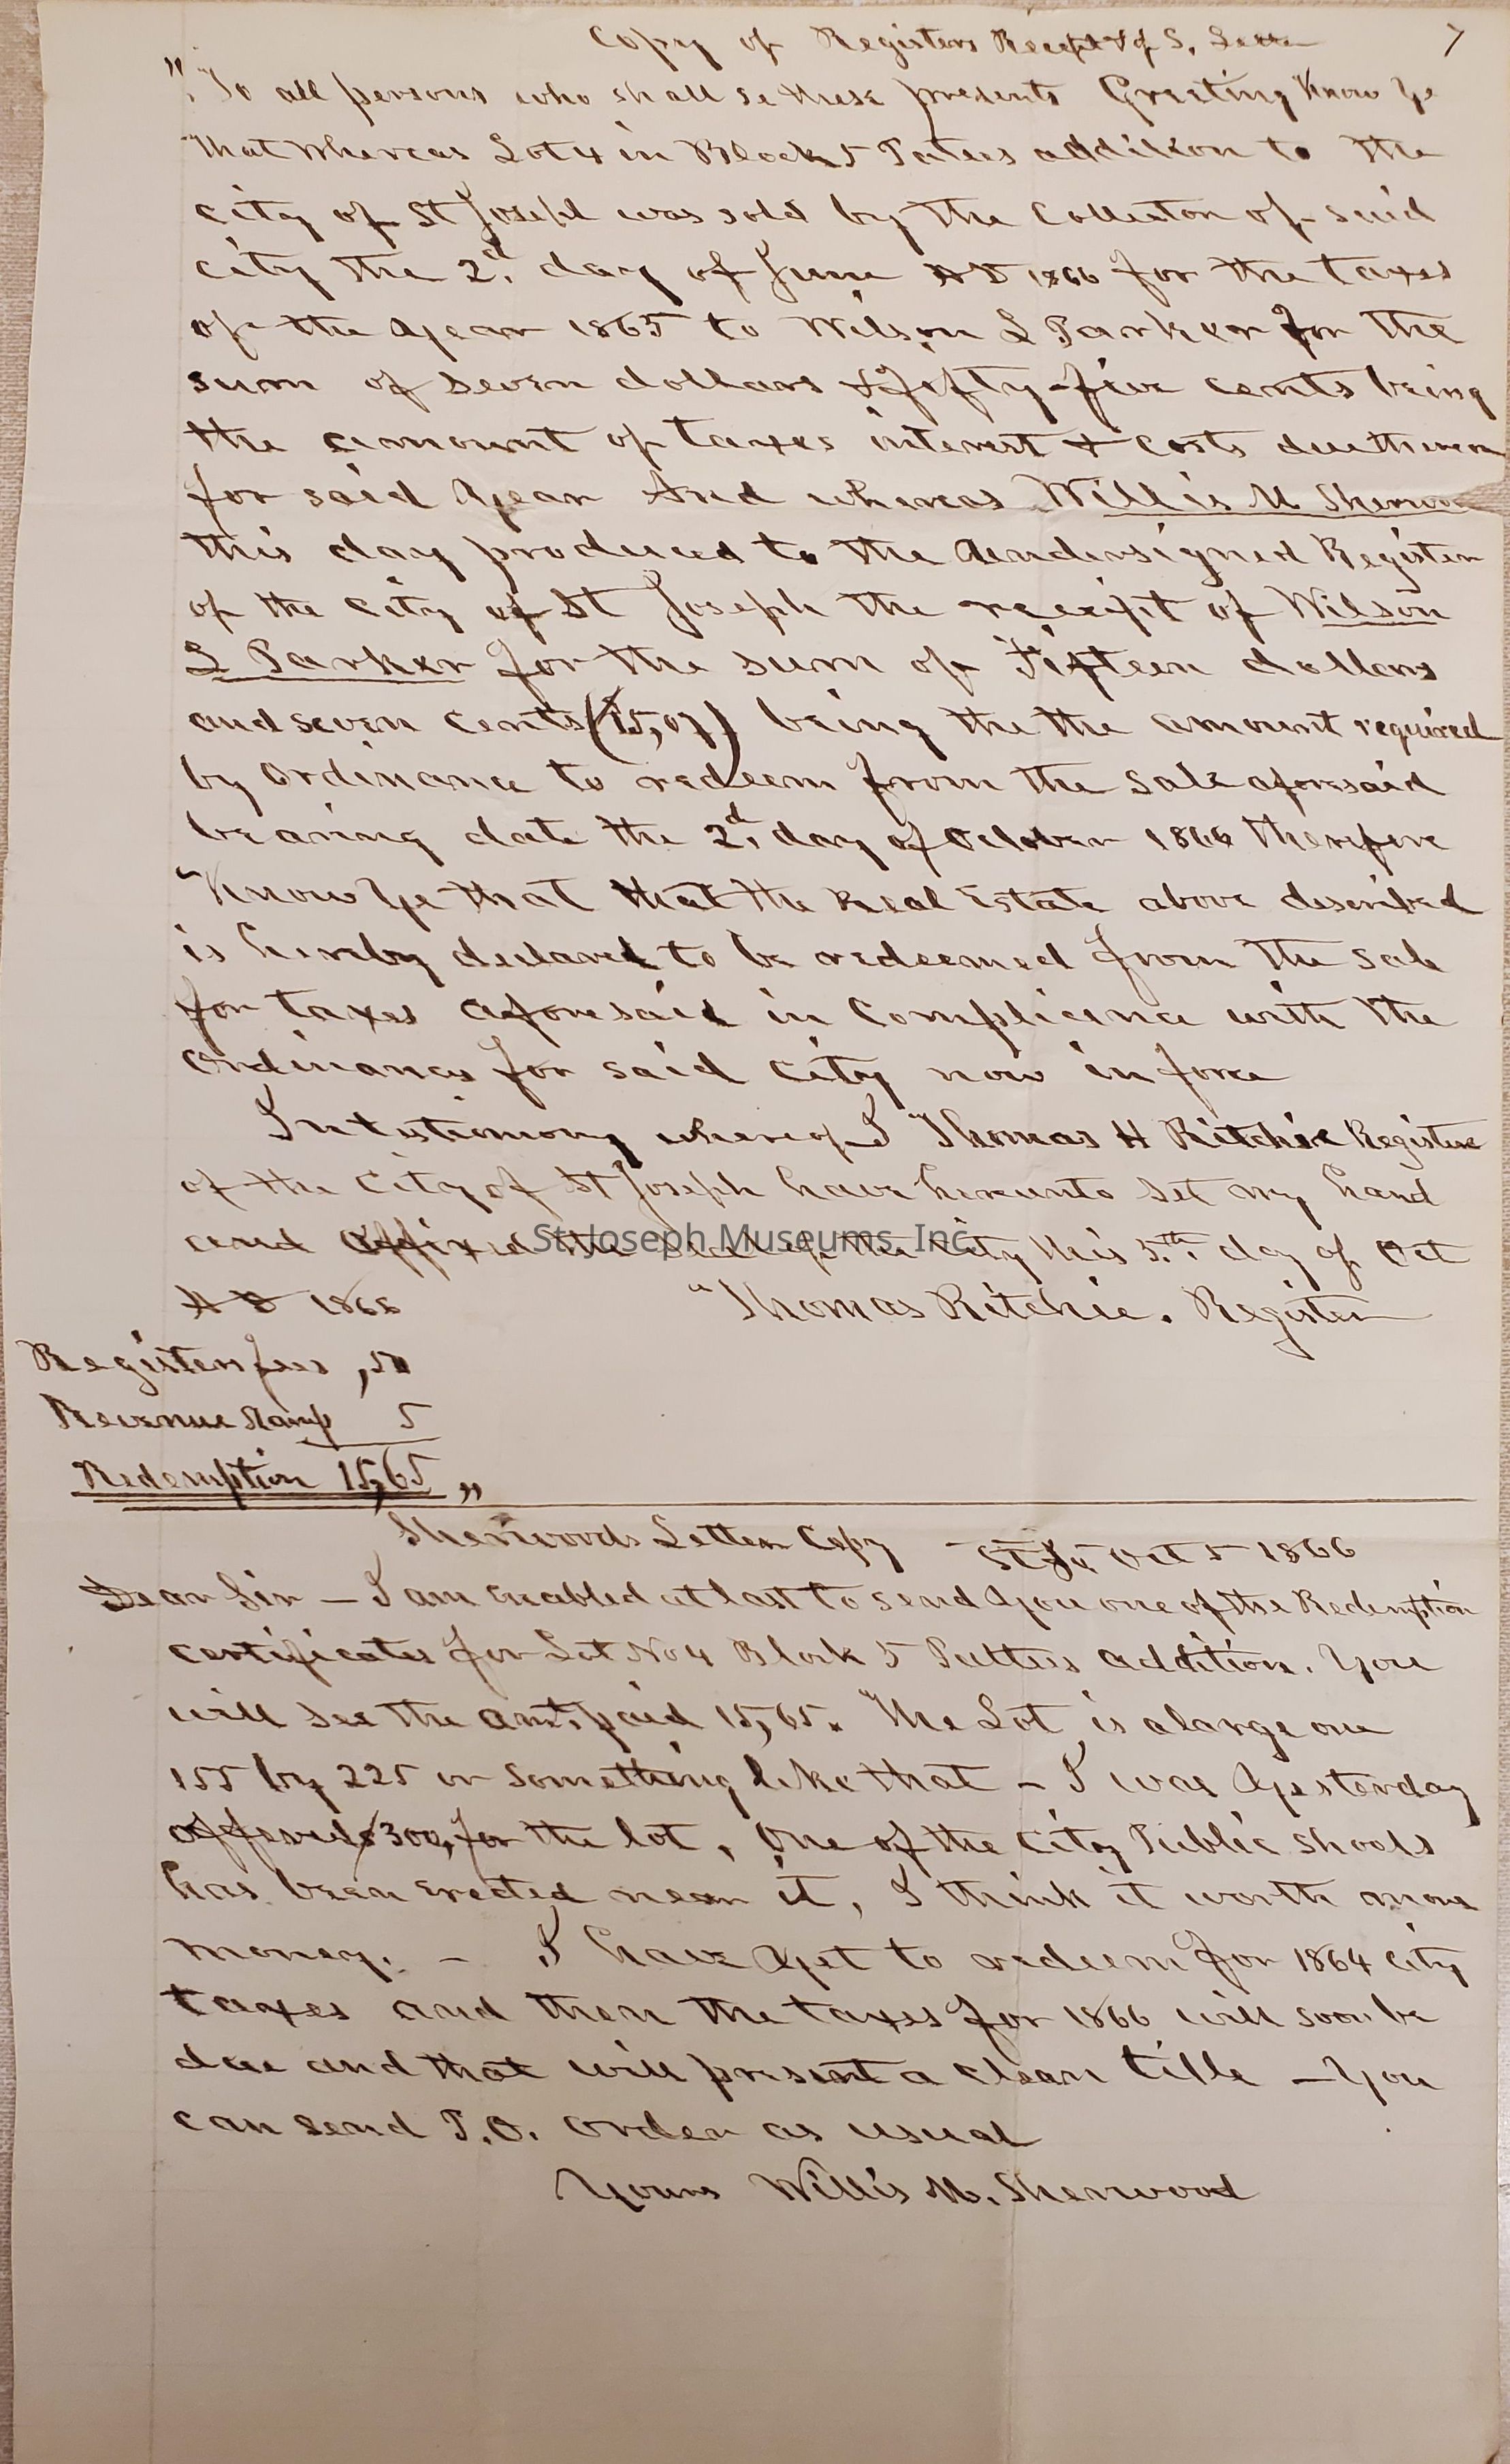 Copy of Registers Receipt & of S. Letter 7
"To all persons who shall se these presents Greeting Know Ye
that whereas Lot 4 in Block 5 Patees addition to the
city of St Joseph was sold by the Collector of said
city the 2d. day of June AD 1866 for the taxes
of the year 1865 to Wilson L Parker for the
sum of seven dollars & fifty-five cents being
the amount of taxes interest & costs due thereon
for said year And whereas Willis M Sherwood
this day produced to the undersigned Register
of the city of St Joseph the receipt of Wilson
L Parker for the sum of Fifteen dollars
and seven cents ($15,07) being the the amount required
by Ordinance to redeem from the sale aforesaid
bearing date the 2d. day of October 1866 therefore
"Know Ye that that the Real Estate above described
is hereby declared to be redeemed from the sale
for taxes aforesaid in compliance with the
Ordinances for said city now in force
In testimony whereof I "Thomas H Ritchie Register
of the City of St Joseph have hereunto set my hand
and affixed the seal of the City this 5th. day of Oct
A D 1866 "Thomas Ritchie. Register
Registers fees ,50
Revenue Stamp 5
Redemption 15,65 "
Sherwoods Letter Copy – St Jo Oct 5 1866
Dear Sir – I am enabled at last to send you one of the Redemption
certificates for Lot No 4 Block 5 Pattees addition. You
will see the amt, paid 15,65. The Lot is a large one
155 by 225 or something like that – I was yesterday
offered $300, for the lot, One of the City Public Shools
has been erected near it, I think it worth more
money. – I have yet to redeem for 1864 city
taxes and then the taxes for 1866 will soon be
due and that will present a clean title – You
can send P.O. order as usual
Yours Willis M. Sherwood
St Joseph Museums, Inc.